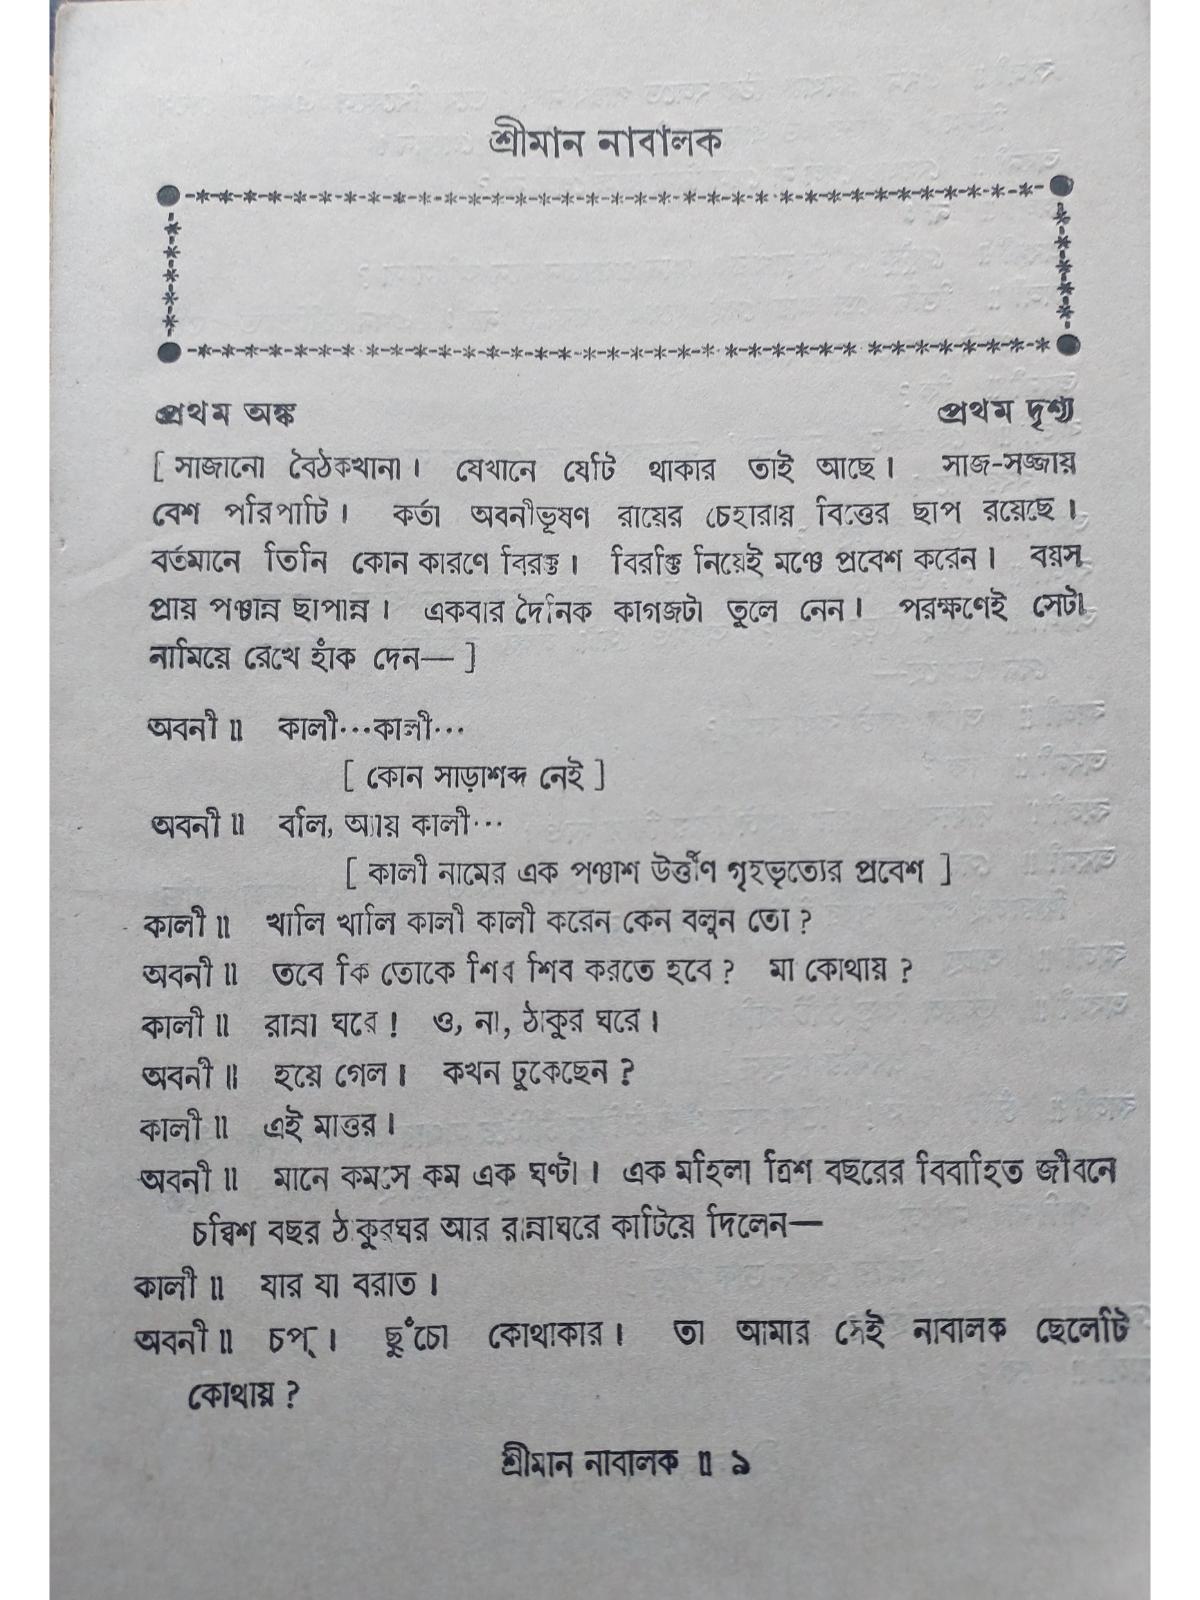 শ্রীমান নাবালক
প্রথম অঙ্ক প্রথম দৃশ্য
[ সাজানো বৈঠকখানা। যেখানে যেটি থাকার তাই আছে। সাজ-সজ্জায়
বেশ পরিপাটি। কর্তা অবনীভূষণ রায়ের চেহারায় বিত্তের ছাপ রয়েছে।
বর্তমানে তিনি কোন কারণে বিরক্ত। বিরক্তি নিয়েই মঞ্চে প্রবেশ করেন। বয়স
প্রায় পঞ্চান্ন ছাপান্ন। একবার দৈনিক কাগজটা তুলে নেন। পরক্ষণেই সেটা
নামিয়ে রেখে হাঁক দেন— ]
অবনী॥ কালী...কালী...
[ কোন সাড়াশব্দ নেই ]
অবনী॥ বলি, অ্যায় কালী...
[ কালী নামের এক পঞ্চাশ উর্ত্তীণ গৃহভৃত্যের প্রবেশ ]
কালী॥ খালি খালি কালী কালী করেন কেন বলুন তো?
অবনী॥ তবে কি তোকে শিব শিব করতে হবে? মা কোথায়?
কালী॥ রান্না ঘরে! ও, না, ঠাকুর ঘরে।
অবনী॥ হয়ে গেল। কখন ঢুকেছেন?
কালী॥ এই মাত্তর।
অবনী॥ মানে কমসে কম এক ঘণ্টা। এক মহিলা ত্রিশ বছরের বিবাহিত জীবনে
চব্বিশ বছর ঠাকুরঘর আর রান্নাঘরে কাটিয়ে দিলেন—
কালী॥ যার যা বরাত।
অবনী॥ চপ্। ছুঁচো কোথাকার। তা আমার সেই নাবালক ছেলেটি
কোথায়?
শ্রীমান নাবালক॥ ৯